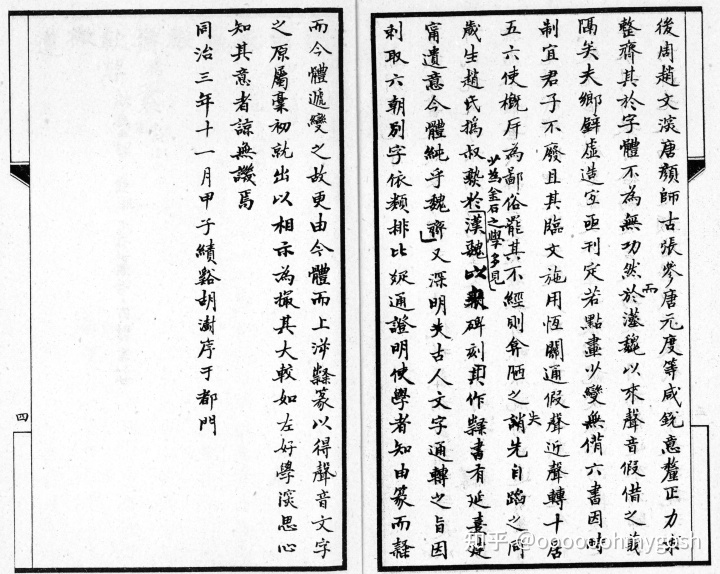 後周趙文深唐顏師古張參唐元度等咸銳意釐正力求
而
整齊其於字體不為無功然於漢魏以來聲音假借之義
隔矣夫鄉壁虛造宜亟刊定若點畫少變無偝六書因時
制宜君子不廢且其臨文施用恆關通假聲近聲轉十居
五六使概斥為鄙俗罷其不經則弇陋之誚先自蹈之同
少為金石之學多見
歲生趙氏撝叔摯於漢魏以來碑刻其作隸書有延熹建
甯遺意今體純乎魏齊又深明夫古人文字通轉之旨因
刺取六朝別字依類排比疑通證明使學者知由篆而隸
而今體遞變之故更由今體而上泝隸篆以得聲音文字
之原屬稾初就出以相示為撮其大較如左好學深思心
知其意者諒無譏焉
同治三年十一月甲子績谿胡澍序于都門
四
知乎 @ooooohmygosh